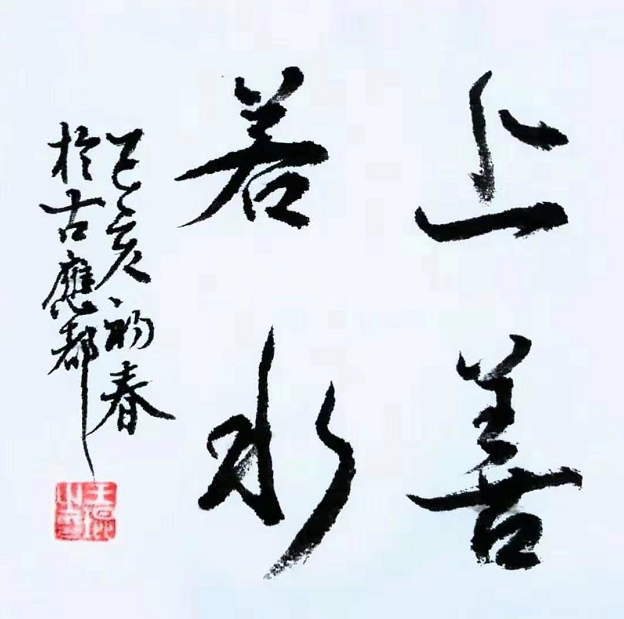 上善
若水
己亥初春
於古應都